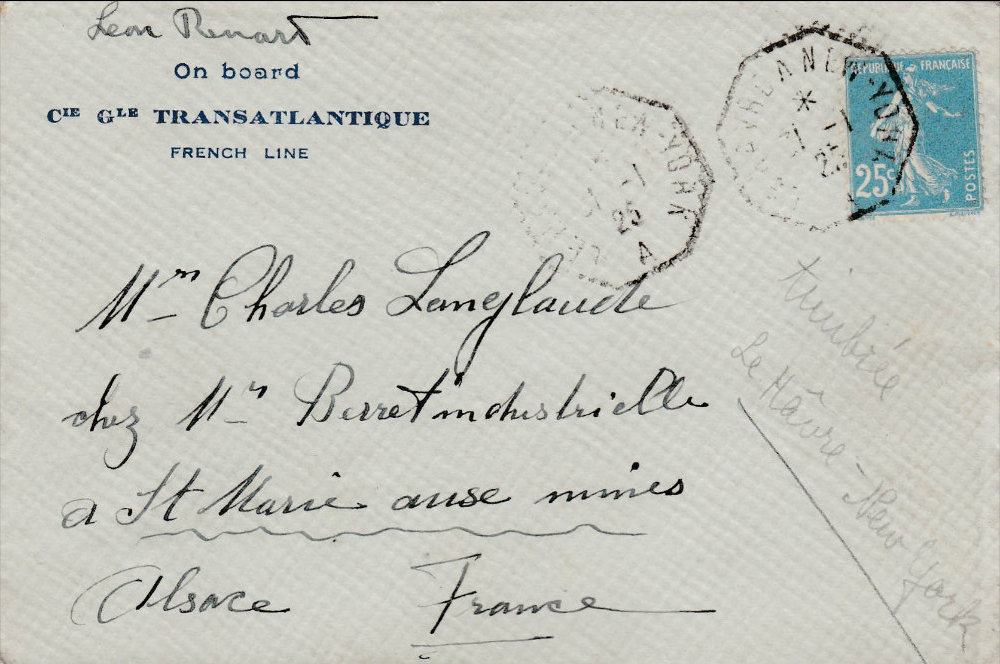 Leon Renart
On board
CIE GLE TRANSATLANTIQUE
FRENCH LINE
NEW-YORK
1 -1
25
A
NEW-YORK
*
1 -1
25
REPUBLIQUE FRANÇAISE
25c
POSTES
Mr Charles Langlaude
chez Mr Berret industrielle
a St Marie ause mines
Alsace France
timbrée
Le Hâvre - New York